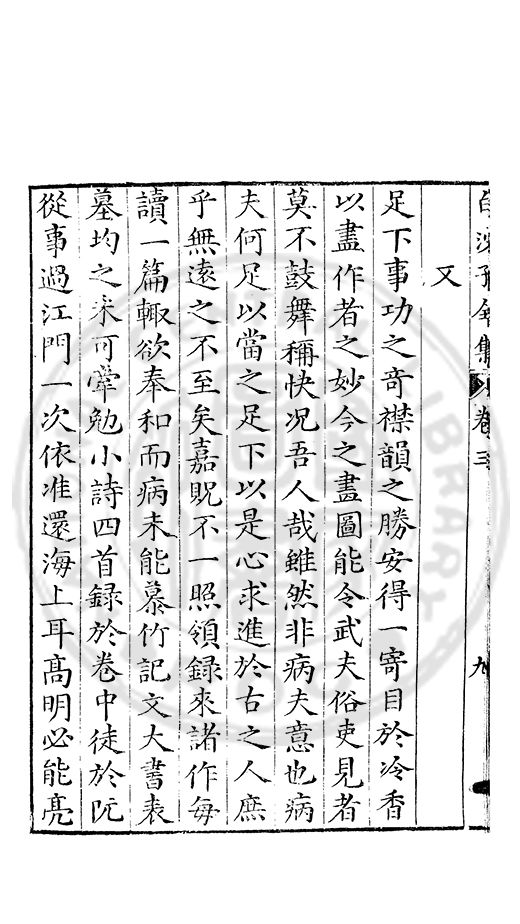 白沙子全集 卷三 九
又
足下事功之奇襟韻之勝安得一寄目於冷香
以盡作者之妙今之畫圖能令武夫俗吏見者
莫不鼓舞稱快况吾人哉雖然非病夫意也病
夫何足以當之足下以是心求進於古之人庶
乎無遠之不至矣嘉貺不一照領錄來諸作每
讀一篇輙欲奉和而病未能慕竹記文大書表
墓均之未可牽勉小詩四首録於卷中徒於阮
從事過江門一次依准還海上耳高明必能亮
LIBRARY